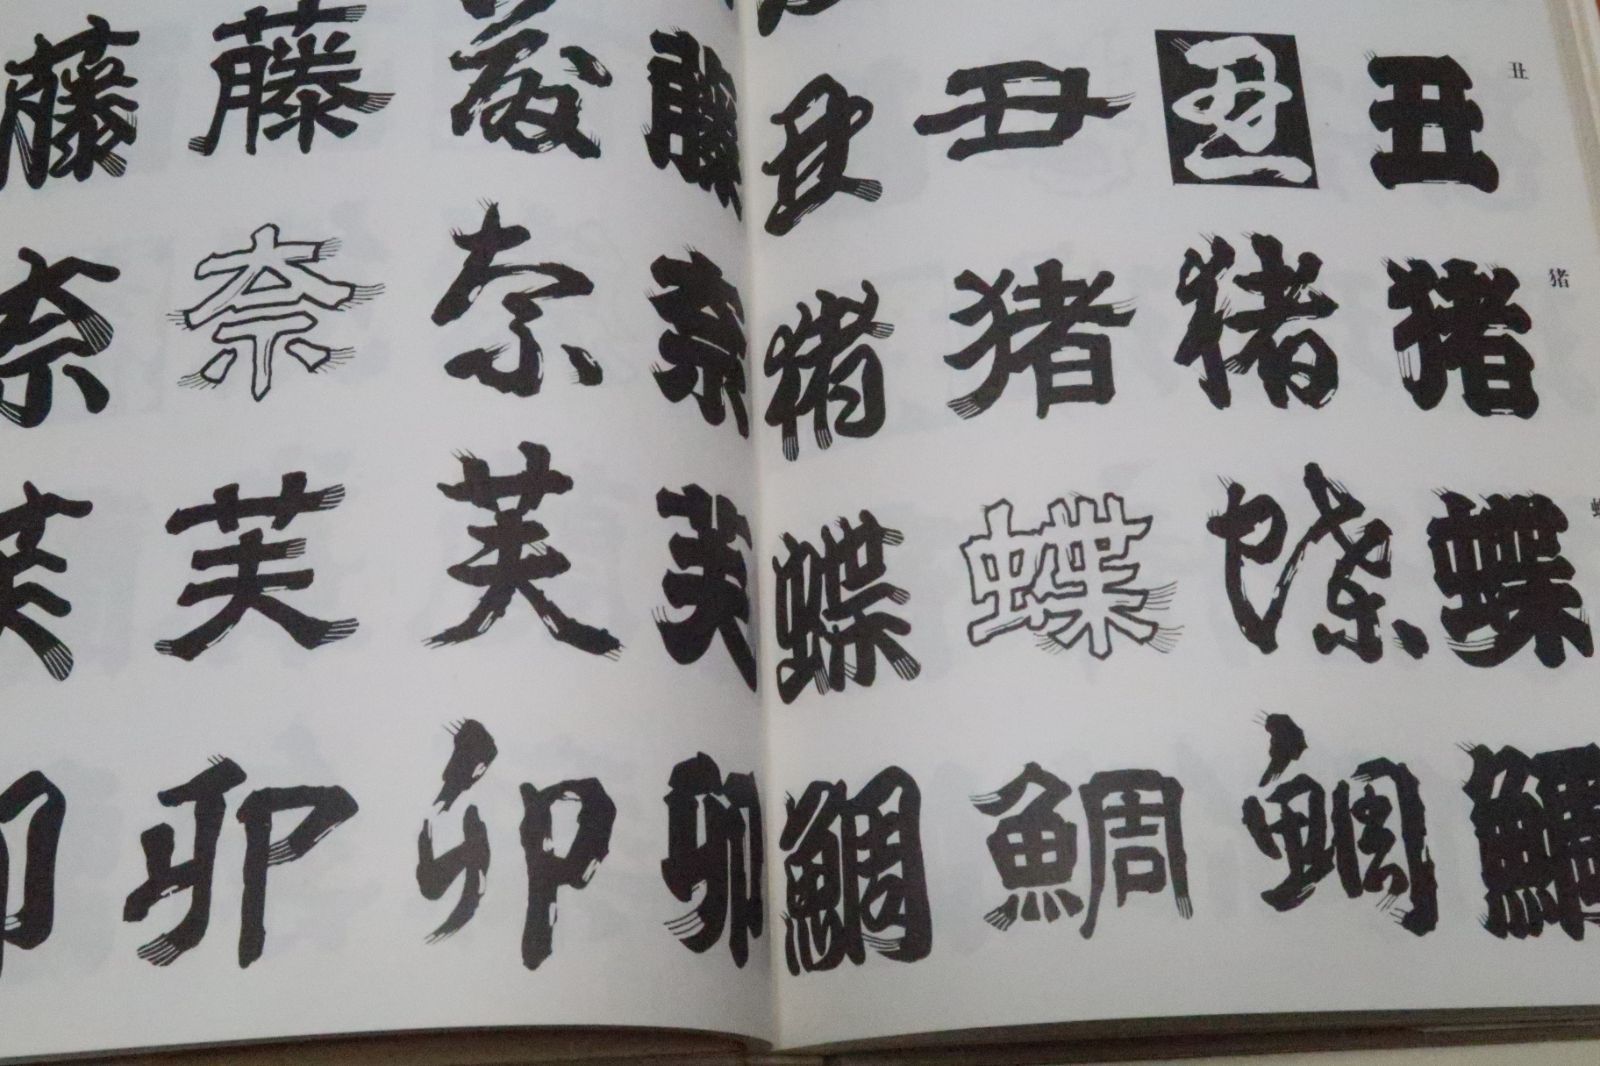 藤 藤 藤 藤
奈 奈 奈 奈
芙 芙 芙 芙
卯 卯 卯 卯
丑 丑 丑 丑 丑
猪 猪 猪 猪 猪
蝶 蝶 蝶 蝶
鯛 鯛 鯛 鯛